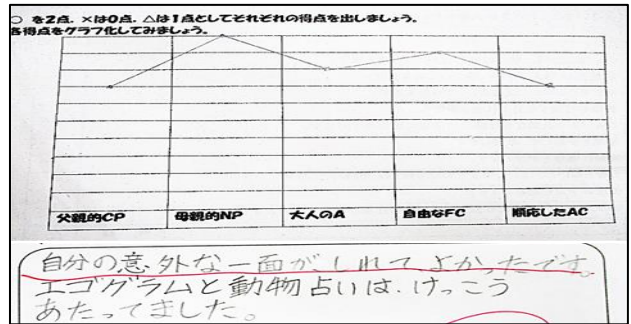 ○ を2点、×は0点、△は1点としてそれぞれの得点を出しましょう。
各得点をグラフ化してみましょう。
父親的CP 母親的NP 大人のA 自由なFC 順応したAC
自分の意外な一面が、しれてよかったです。
エゴグラムと動物占いは、けっこう
あたってました。